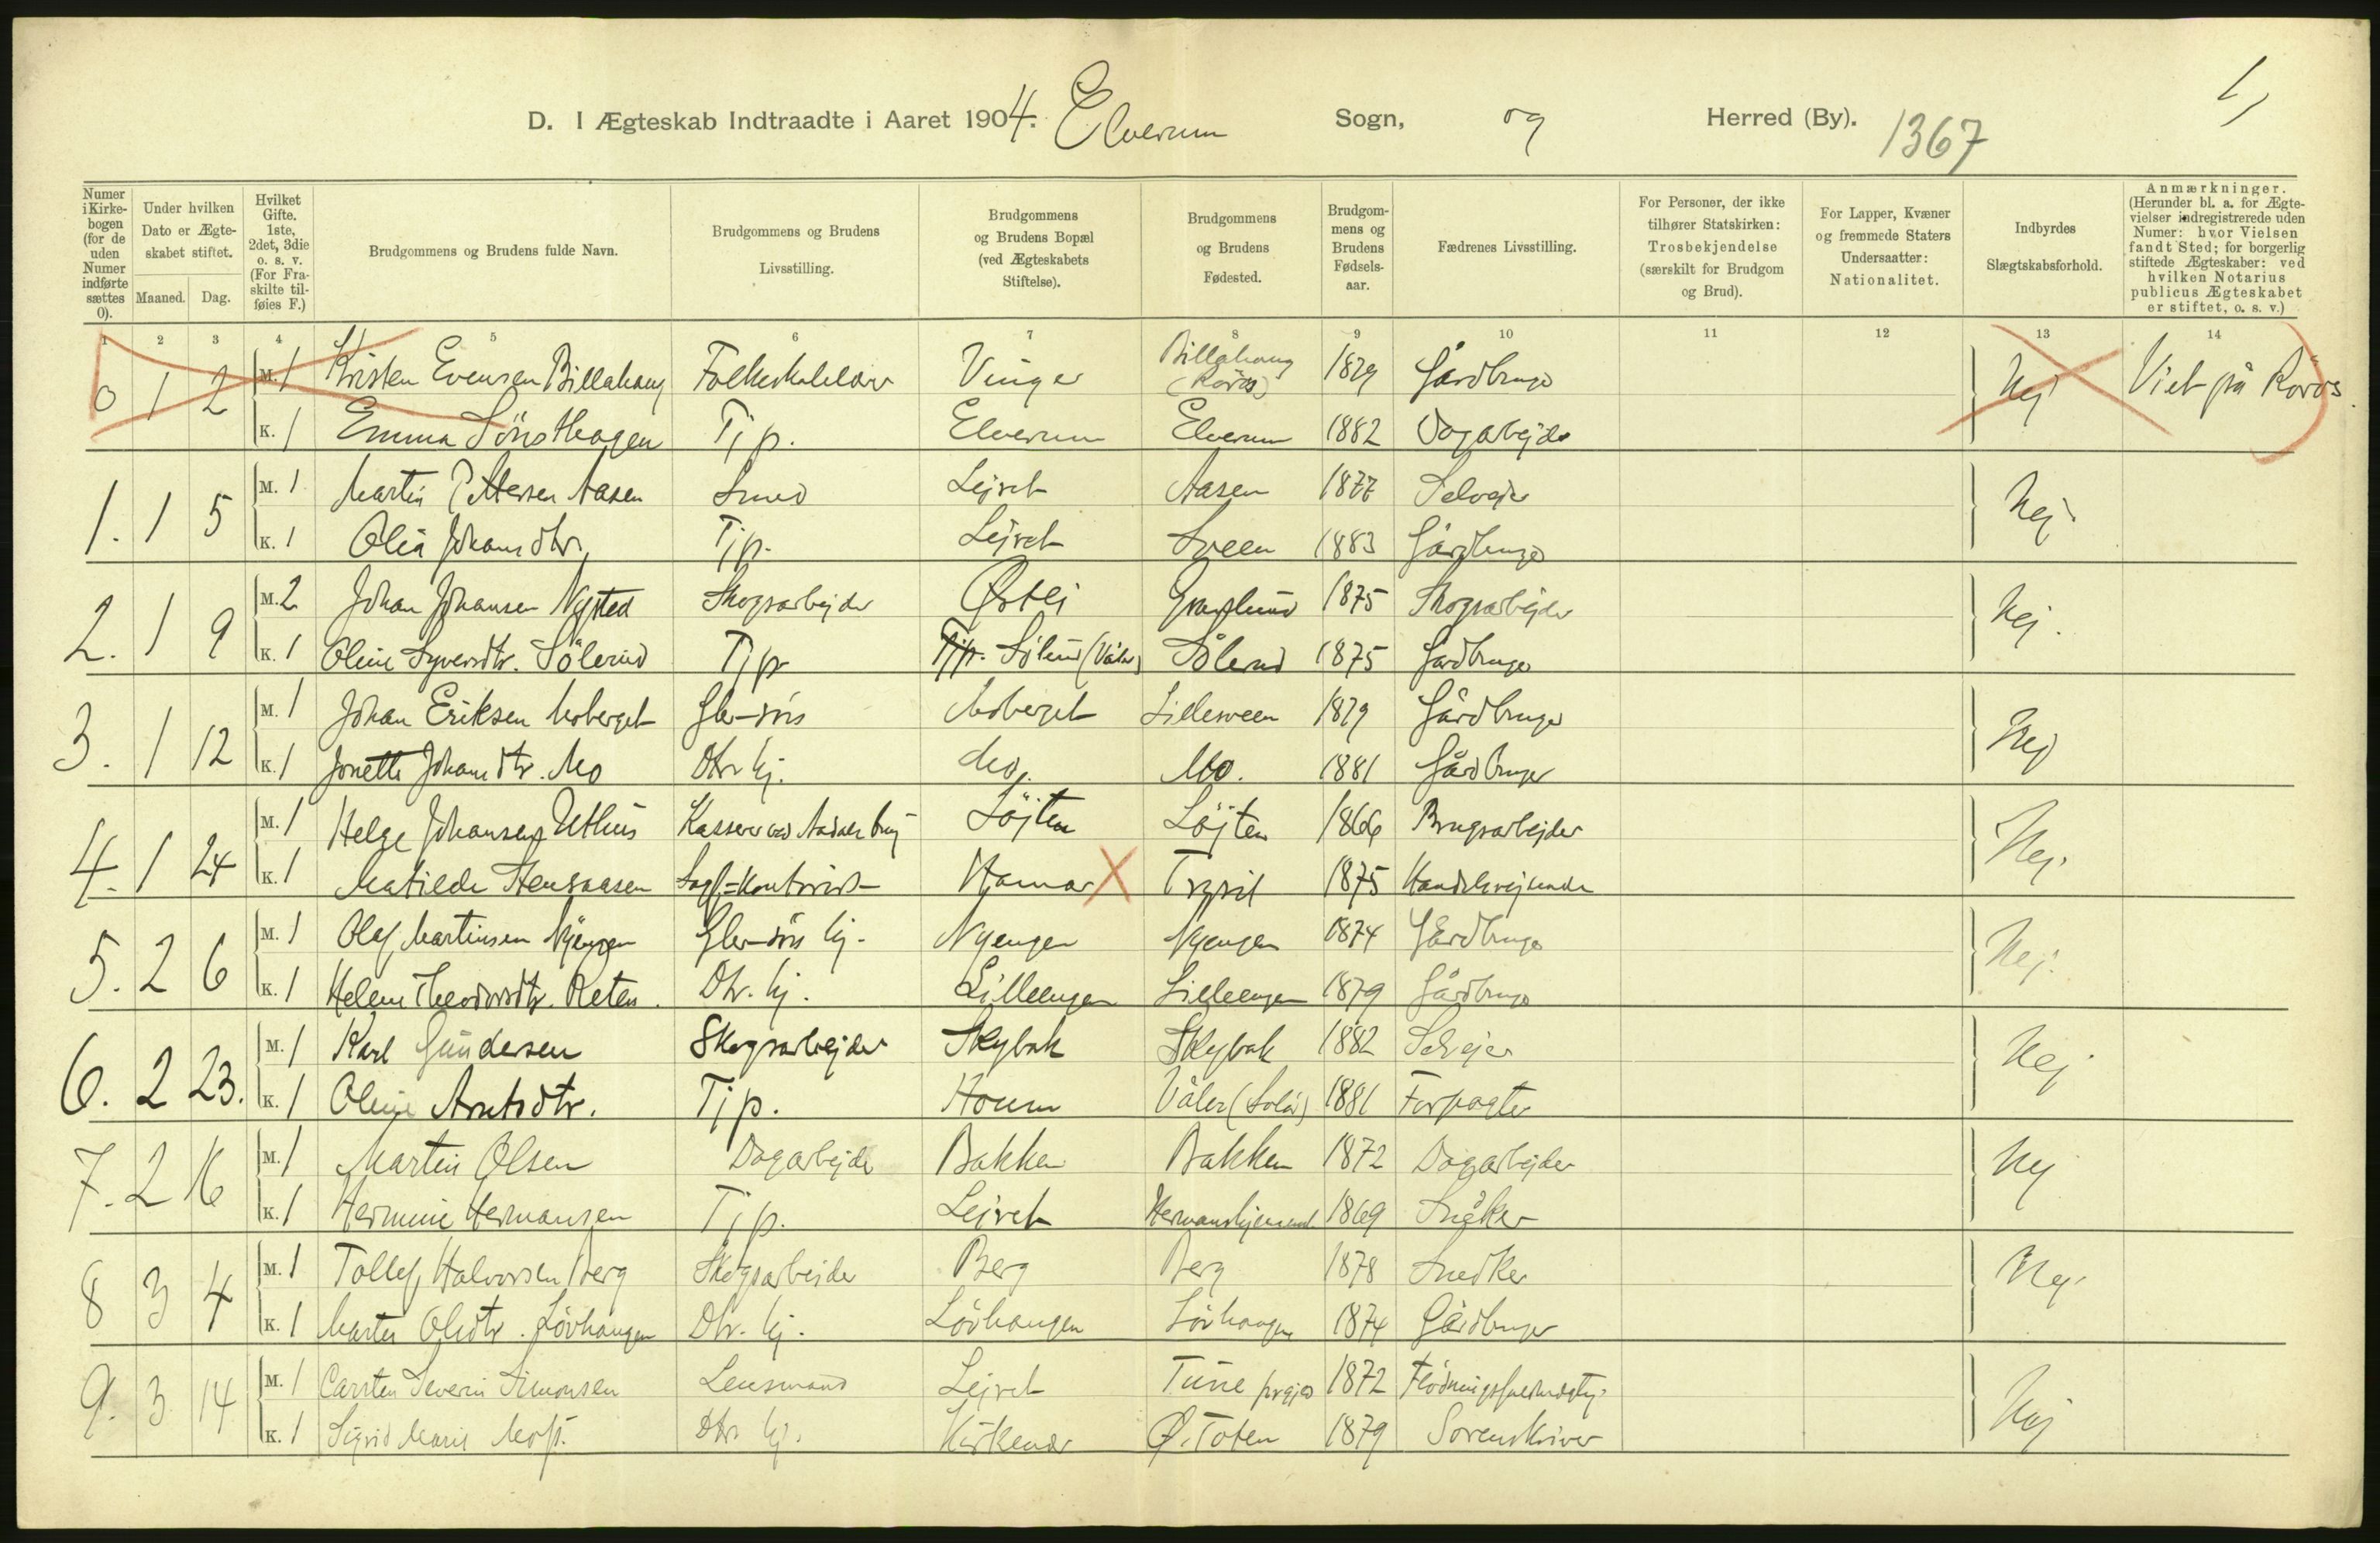 1,
D. I Ægteskab Indtraadte i Aaret 1904. Elverum Sogn, og Herred (By). 1367
Numer i Kirke-bogen (for de uden Numer indførte sættes 0).
Under hvilken Dato er Ægte-skabet stiftet.
Maaned. Dag.
Hvilket Gifte. 1ste, 2det, 3die o. s. v. (For Fra-skilte til-føies F.)
Brudgommens og Brudens fulde Navn.
Brudgommens og Brudens Livsstilling.
Brudgommens og Brudens Bopæl (ved Ægteskabets Stiftelse).
Brudgommens og Brudens Fødested.
Brudgom-mens og Brudens Fødsels-aar.
Fædrenes Livsstilling.
For Personer, der ikke tilhører Statskirken: Trosbekjendelse (særskilt for Brudgom og Brud).
For Lapper, Kvæner og fremmede Staters Undersaatter: Nationalitet.
Indbyrdes Slægtskabsforhold.
Anmærkninger. (Herunder bl. a. for Ægte-vielser indregistrerede uden Numer: hvor Vielsen fandt Sted; for borgerlig stiftede Ægteskaber: ved hvilken Notarius publicus Ægteskabet er stiftet, o. s. v.)
1 2 3 4 5 6 7 8 9 10 11 12 13 14
0 1 2 M. 1 Kristen Evensen Billahaug Folkeskolelærer Vinger Billahaug (Røros) 1879 Gårdbruger Nej Viet på Røros.
K. 1 Emma Sönsthagen Tjp. Elverum Elverum 1882 Dagarbejder
1. 1 5 M. 1 Martin Pettersen Aasen Smed Lejret Aasen 1877 Selvejer Nej
K. 1 Olea Johansdtr. Tjp. Lejret Sveen 1883 Gårdbruger
2. 1 9 M. 2 Johan Johansen Nysted Skogsarbejder Østli 1875 Skogsarbejder Nej.
K. 1 Oline Syversdtr. Sölerud Tjp Tjp. Sölerud (Våler) Sölerud 1875 Gardbruger
3. 1 12 M. 1 Johan Eriksen Moberget Gbr-søn Moberget Lillesveen 1879 Gårdbruger Nej
K. 1 Jonette Johansdtr. Mo Dtr. hj. Mo. Mo. 1881 Gårdbruger
4. 1 24 M. 1 Helge Johansen Uthus Kasserer ved Aadals brug Löjten Löjten 1866 Brugsarbejder Nej.
K. 1 Matilde Stensaasen Hamar Trysil 1875 Handelsrejsende
5. 2 6 M. 1 Olaf Martinsen Nyengen Gbr-søn hj. Nyengen Nyengen 1874 Gårdbruger Nej.
K. 1 Helene Theodorsdtr. Reten. Dtr. hj. Lilleengen Lilleengen 1879 Gårdbruger
6. 2 23. M. 1 Karl Gundersen Skogsarbejder Skybak Skybak 1882 Selvejer Nej
K. 1 Oline Arntsdtr. Tjp. Houm Våler (Solør) 1881 Forpagter
7. 2 16 M. 1 Martin Olsen Dagarbejder Bakken Bakken 1872 Dagarbejder Nej
K. 1 Hermine Hermansen Tjp. Lejret 1869 Snedker
8 3 4 M. 1 Tollef Halvorsen Berg Skogsarbeider Berg Berg 1878 Snedker Nej.
K. 1 Marte Olsdtr. Lövhaugen Dtr. hj. Lövhaugen Lövhaugen 1874 Gårdbruger
9. 3 14 M. 1 Carsten Severin Simonsen Lensmand Lejret Tune prgjæld 1872 Nej
K. 1 Sigrid Marie Dtr. hj. Kirkenær Ø. Toten 1879 Sorenskriver